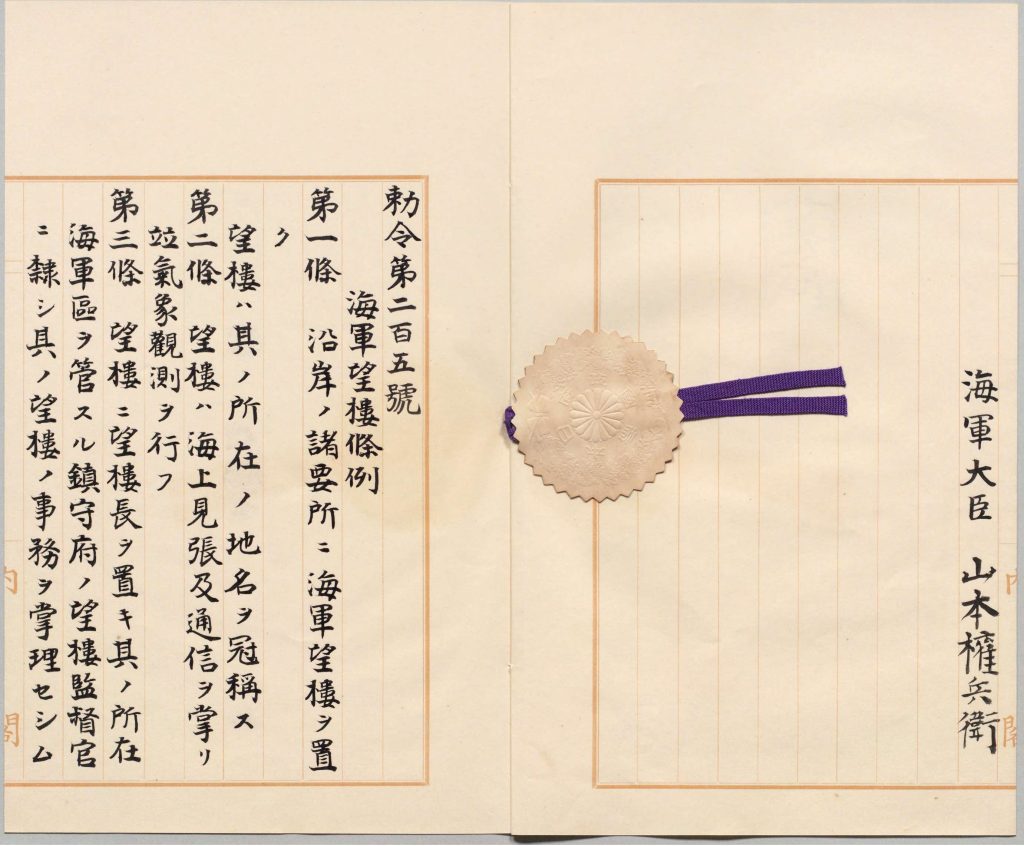 海軍大臣　山本權兵衞
勅令第二百五號
海軍望樓條例
第一條　沿岸ノ諸要所ニ海軍望樓ヲ置
ク
望樓ハ其ノ所在ノ地名ヲ冠稱ス
第二條　望樓ハ海上見張及通信ヲ掌リ
竝氣象觀測ヲ行フ
第三條　望樓ニ望樓長ヲ置キ其ノ所在
海軍區ヲ管スル鎮守府ノ望樓監督官
ニ隸シ具ノ望樓ノ事務ヲ掌理セシム
內
閣